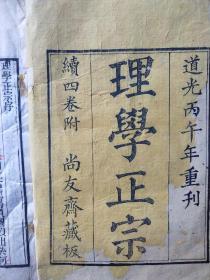 道光丙午年重刊
理學正宗
續四卷附 尚友齋藏板
理學正宗序